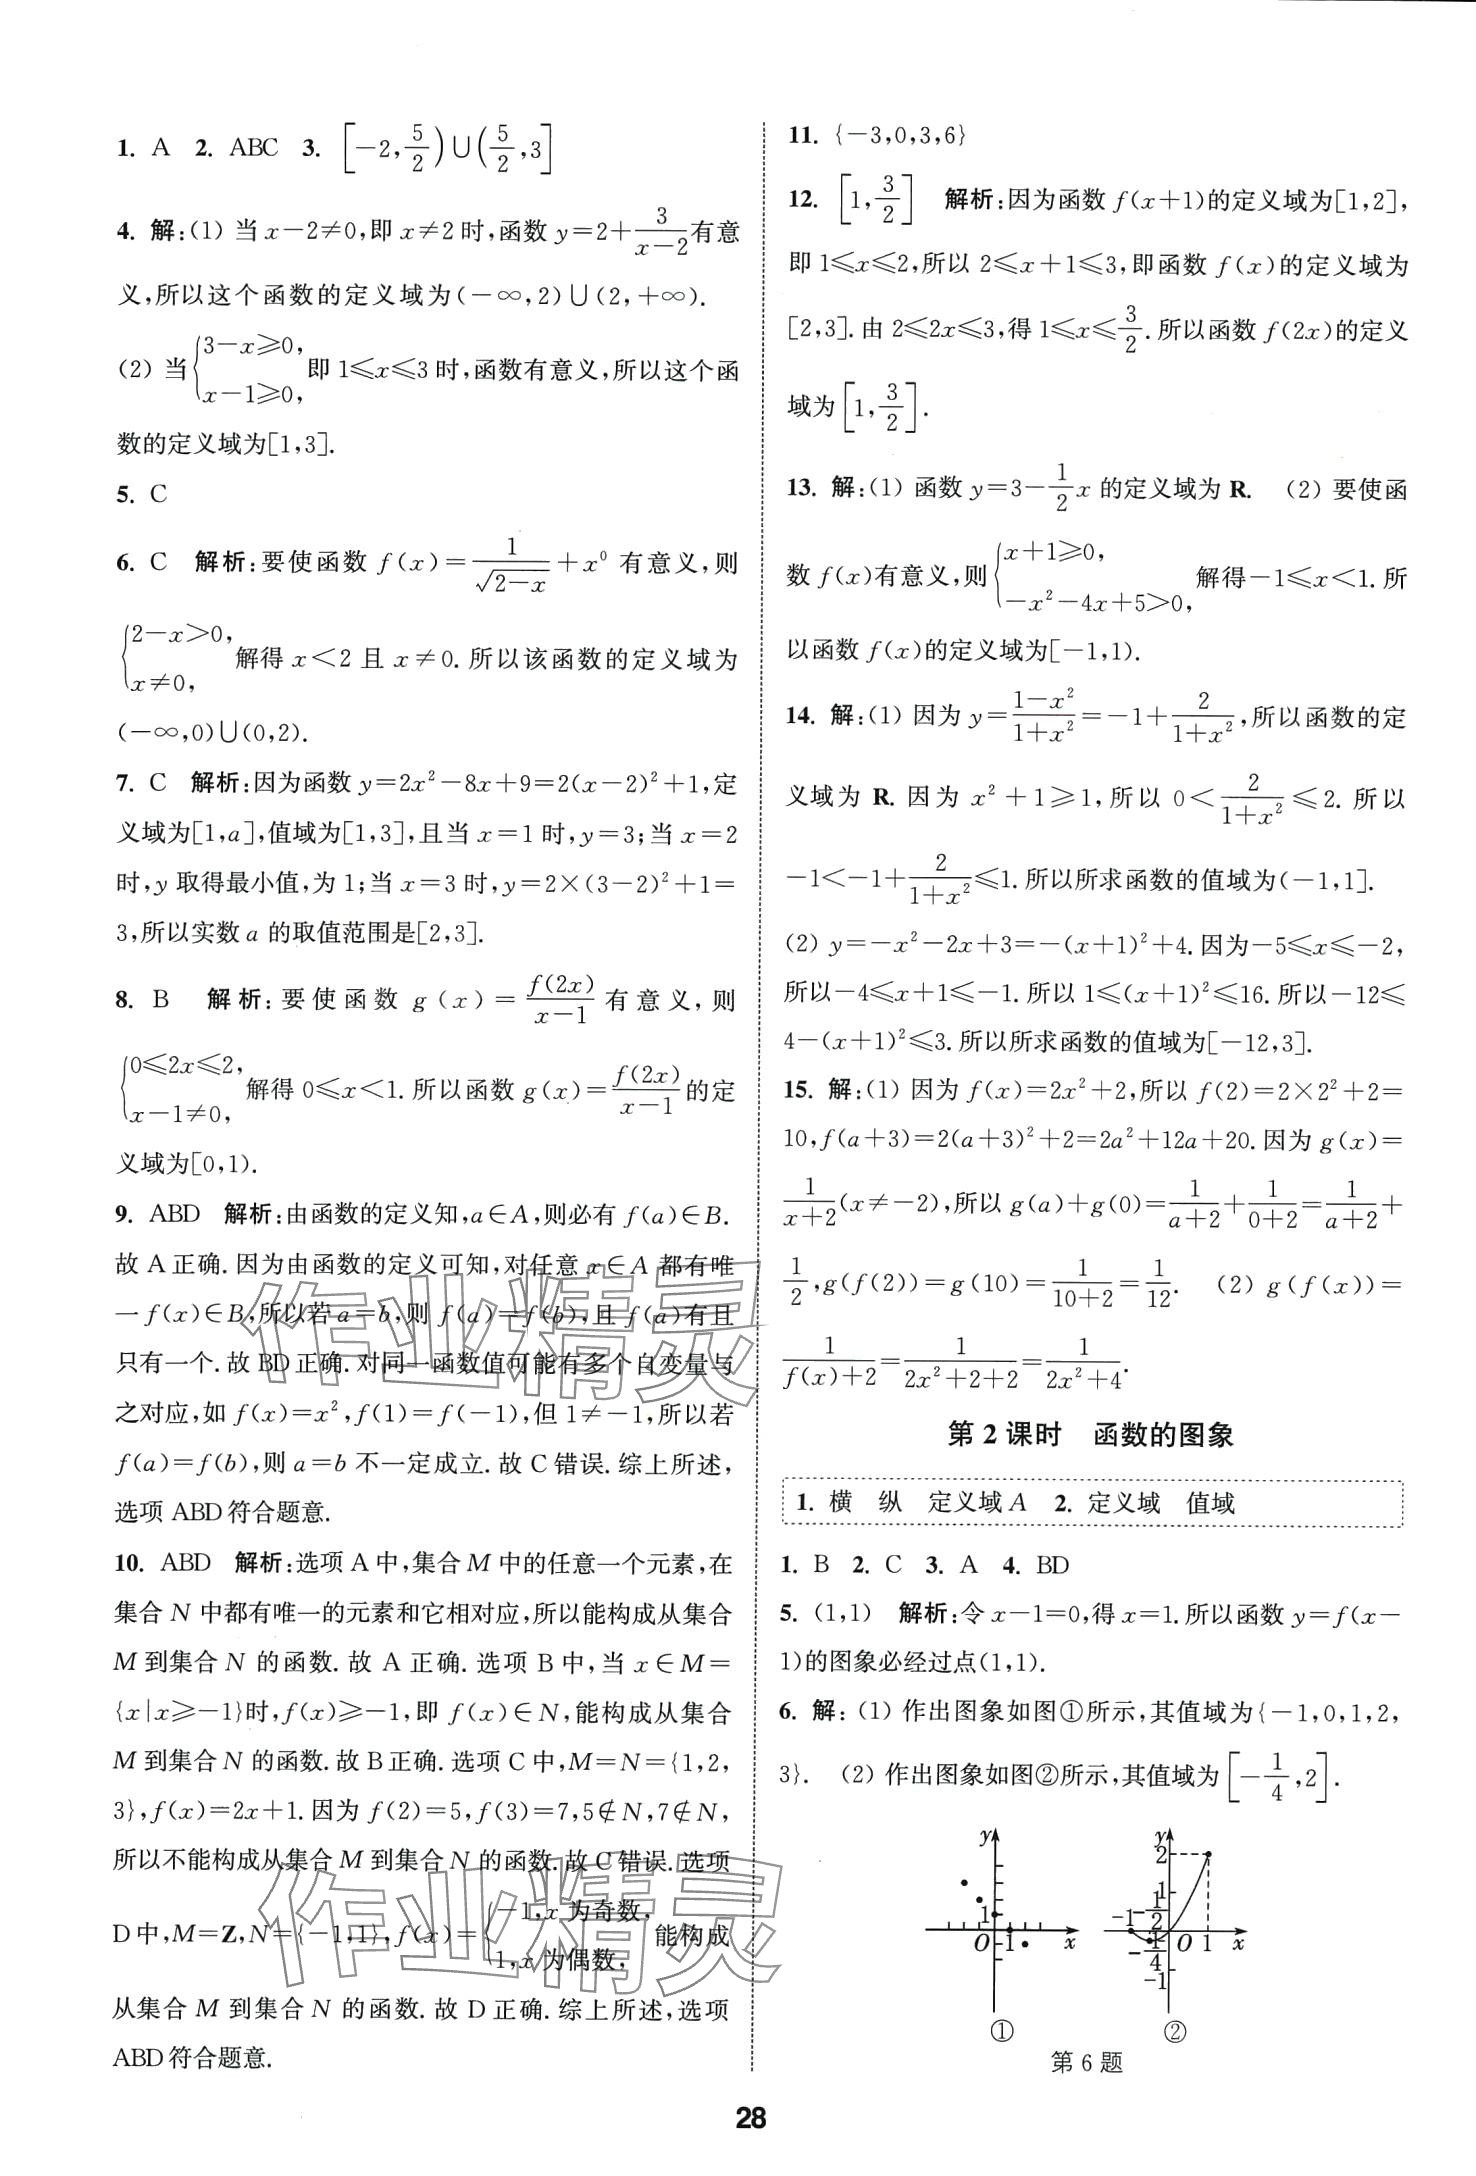 1. A 2. ABC 3. [-2, 5/2)∪(5/2, 3]
4. 解:(1) 当 x-2≠0,即 x≠2 时,函数 y=2+3/(x-2)有意
义,所以这个函数的定义域为(-∞,2)∪(2,+∞).
(2) 当{3-x≥0, x-1≥0, 即 1≤x≤3 时,函数有意义,所以这个函
数的定义域为[1,3].
5. C
6. C 解析:要使函数 f(x)=1/√(2-x)+x⁰ 有意义,则
{2-x>0, x≠0, 解得 x<2 且 x≠0.所以该函数的定义域为
(-∞,0)∪(0,2).
7. C 解析:因为函数 y=2x²-8x+9=2(x-2)²+1,定
义域为[1,a],值域为[1,3],且当 x=1 时,y=3;当 x=2
时,y 取得最小值,为 1;当 x=3 时,y=2×(3-2)²+1=
3,所以实数 a 的取值范围是[2,3].
8. B 解析:要使函数 g(x)=f(2x)/(x-1)有意义,则
{0≤2x≤2, x-1≠0, 解得 0≤x<1.所以函数 g(x)=f(2x)/(x-1)的定
义域为[0,1).
9. ABD 解析:由函数的定义知,a∈A,则必有 f(a)∈B.
故 A 正确.因为由函数的定义可知,对任意 x∈A 都有唯
一 f(x)∈B,所以若 a=b,则 f(a)=f(b),且 f(a)有且
只有一个.故 BD 正确.对同一函数值可能有多个自变量与
之对应,如 f(x)=x²,f(1)=f(-1),但 1≠-1,所以若
f(a)=f(b),则 a=b 不一定成立.故 C 错误.综上所述,
选项 ABD 符合题意.
10. ABD 解析:选项 A 中,集合 M 中的任意一个元素,在
集合 N 中都有唯一的元素和它相对应,所以能构成从集合
M 到集合 N 的函数.故 A 正确.选项 B 中,当 x∈M=
{x|x≥-1}时,f(x)≥-1,即 f(x)∈N,能构成从集合
M 到集合 N 的函数.故 B 正确.选项 C 中,M=N={1,2,
3},f(x)=2x+1.因为 f(2)=5,f(3)=7,5∉N,7∉N,
所以不能构成从集合 M 到集合 N 的函数.故 C 错误.选项
D 中,M=Z,N={-1,1},f(x)={-1,x 为奇数, 1,x 为偶数, 能构成
从集合 M 到集合 N 的函数.故 D 正确.综上所述,选项
ABD 符合题意.
11. {-3,0,3,6}
12. [1, 3/2] 解析:因为函数 f(x+1)的定义域为[1,2],
即 1≤x≤2,所以 2≤x+1≤3,即函数 f(x)的定义域为
[2,3].由 2≤2x≤3,得 1≤x≤3/2.所以函数 f(2x)的定义
域为[1, 3/2].
13. 解:(1) 函数 y=3-1/2 x 的定义域为 R. (2) 要使函
数 f(x)有意义,则{x+1≥0, -x²-4x+5>0, 解得-1≤x<1.所
以函数 f(x)的定义域为[-1,1).
14. 解:(1) 因为 y=(1-x²)/(1+x²)=-1+2/(1+x²),所以函数的定
义域为 R.因为 x²+1≥1,所以 0<2/(1+x²)≤2.所以
-1<-1+2/(1+x²)≤1.所以所求函数的值域为(-1,1].
(2) y=-x²-2x+3=-(x+1)²+4.因为-5≤x≤-2,
所以-4≤x+1≤-1.所以 1≤(x+1)²≤16.所以-12≤
4-(x+1)²≤3.所以所求函数的值域为[-12,3].
15. 解:(1) 因为 f(x)=2x²+2,所以 f(2)=2×2²+2=
10,f(a+3)=2(a+3)²+2=2a²+12a+20.因为 g(x)=
1/(x+2)(x≠-2),所以 g(a)+g(0)=1/(a+2)+1/(0+2)=1/(a+2)+
1/2,g(f(2))=g(10)=1/(10+2)=1/12. (2) g(f(x))=
1/(f(x)+2)=1/(2x²+2+2)=1/(2x²+4).
第 2 课时 函数的图象
1. 横 纵 定义域 A 2. 定义域 值域
1. B 2. C 3. A 4. BD
5. (1,1) 解析:令 x-1=0,得 x=1.所以函数 y=f(x-
1)的图象必经过点(1,1).
6. 解:(1) 作出图象如图①所示,其值域为{-1,0,1,2,
3}. (2) 作出图象如图②所示,其值域为[-1/4, 2].
y 1 O 1 x
①
y 2 1 1/2 -1 -1/4 -1 O 1 x
②
第 6 题
28
作业精灵
作业精灵